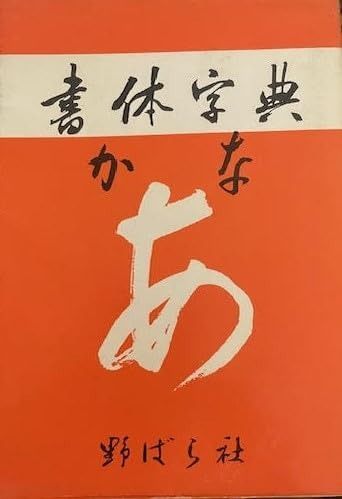 書体字典
かな
あ
野ばら社